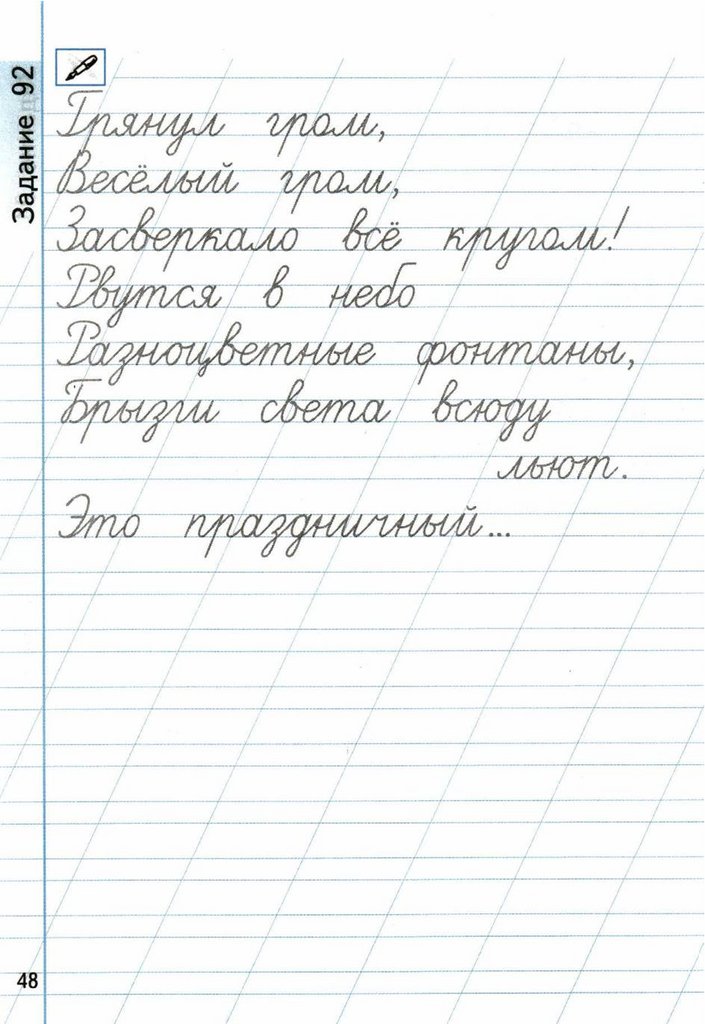 Задание 92
Грянул гром,
Весёлый гром,
Засверкало всё кругом!
Рвутся в небо
Разноцветные фонтаны,
Брызги света всюду
льют.
Это праздничный...
48